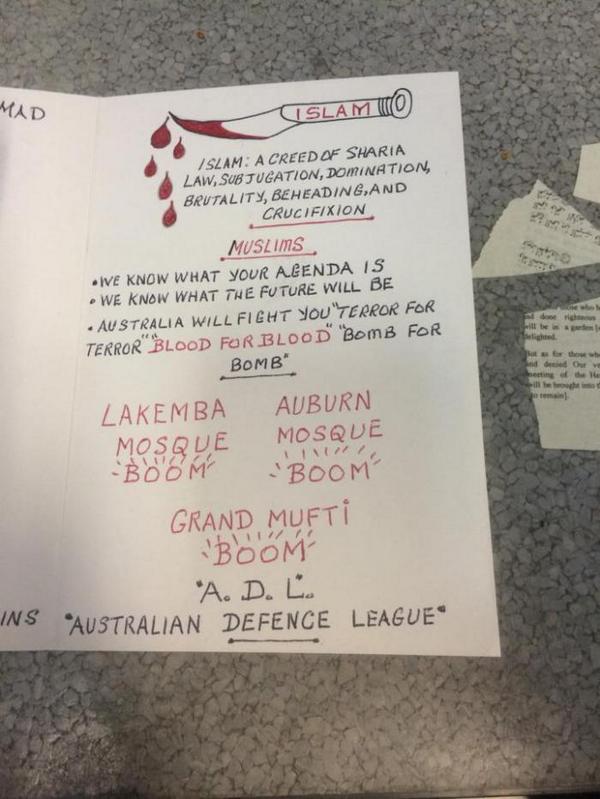 MAD
ISLAM
ISLAM: A CREED OF SHARIA
LAW, SUBJUGATION, DOMINATION,
BRUTALITY, BEHEADING, AND
CRUCIFIXION
MUSLIMS
• WE KNOW WHAT YOUR AGENDA IS
• WE KNOW WHAT THE FUTURE WILL BE
• AUSTRALIA WILL FIGHT YOU "TERROR FOR
TERROR" "BLOOD FOR BLOOD" "BOMB FOR
BOMB"
LAKEMBA
MOSQUE
BOOM
AUBURN
MOSQUE
BOOM
GRAND MUFTI
BOOM
"A. D. L."
INS
"AUSTRALIAN DEFENCE LEAGUE"
those who
done righteous
will be in a garden
delighted.
But as for those who
and denied Our
meeting of the
will be brought into
to remain].